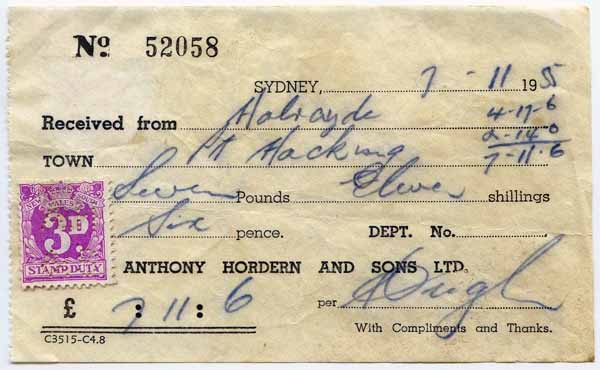 No. 52058
SYDNEY, 7-11 1955
4-17-6
Received from Holroyde
2-14-0
TOWN Pt Hacking 7-11-6
Seven Pounds Eleven shillings
Six pence. DEPT. No.
3D.
STAMP DUTY
ANTHONY HORDERN AND SONS LTD.
£ 7: 11: 6 per
With Compliments and Thanks.
C3515-C4.8